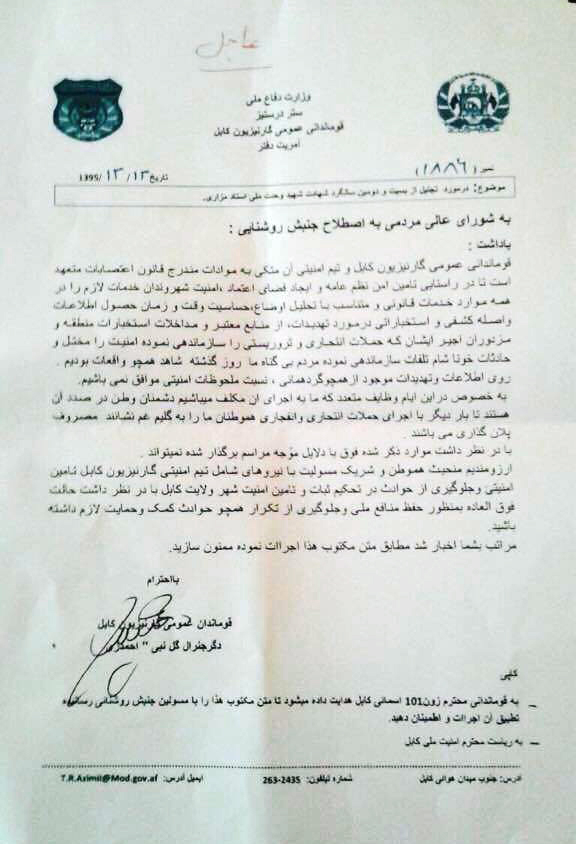 عاجل
وزارت دفاع ملی
ستر درستیز
قوماندانی عمومی گارنیزیون کابل
آمریت دفتر
نمبر (۱۸۸۶)
تاریخ ۱۳/ ۱۲ /1395
موضوع: درمورد تجلیل از بیست و دومین سالگرد شهادت شهید وحت ملی استاد مزاری.
به شورای عالی مردمی به اصطلاح جنبش روشنایی :
یاداشت :
قوماندانی عمومی گارنیزیون کابل و تیم امنیتی آن متکی به موادات مندرج قانون اعتصابات متعهد
است تا در راستایی تامین امن نظم عامه و ایجاد فضای اعتماد ،امنیت شهروندان خدمات لازم را در
همه موارد خدمات قانونی و متناسب با تحلیل اوضاع،حساسیت وقت و زمان حصول اطلاعات
واصله کشفی و استخباراتی درمورد تهدیدات، از منابع معتبر و مداخلات استخبارات منطقه و
مزدوران اجیر ایشان که حملات انتحاری و تروریستی را سازماندهی نموده امنیت را مختل و
حادثات خونا شام تلفات سازماندهی نموده مردم بی گناه ما روز گذشته شاهد همچو واقعات بودیم .
روی اطلاعات وتهدیدات موجود ازهمچوگردهمائی ، نسبت ملحوظات امنیتی موافق نمی باشیم.
به خصوص دراین ایام وظایف متعدد که ما به اجرای ان مکلف میباشیم دشمنان وطن در صدد آن
هستند تا بار دیگر با اجرای حملات انتحاری وانفجاری هموطنان ما را به گلیم غم نشانند مصروف
پلان گذاری می باشند .
با در نظر داشت موارد ذکر شده فوق با دلایل موجه مراسم برگذار شده نمیتواند .
ارزومندیم منحیث هموطن و شریک مسولیت با نیروهای شامل تیم امنیتی گارنیزیون کابل تامین
امنیتی وجلوگیری از حوادث در تحکیم ثبات و تامین امنیت شهر ولایت کابل با در نظر داشت حالت
فوق العاده بمنظور حفظ منافع ملی وجلوگیری از تکرار همچو حوادث کمک وحمایت لازم داشته
باشید.
مراتب بشما اخبار شد مطابق متن مکتوب هذا اجراات نموده ممنون سازید.
بااحترام
قوماندان عمومی گارنیزیون کابل
دگرجنرال گل نبی " احمدزی"
کاپی
_ به قوماندانی محترم زون101 اسمائی کابل هدایت داده میشود تا متن مکتوب هذا را با مسولین جنبش روشنائی رسانیده
تطبیق آن اجراات و اطمینان دهید.
_ به ریاست محترم امنیت ملی کابل
آدرس: جنوب میدان هوائی کابل شماره تیلفون: 2435-263 ایمیل آدرس: T.R.Azimil@Mod.gov.af